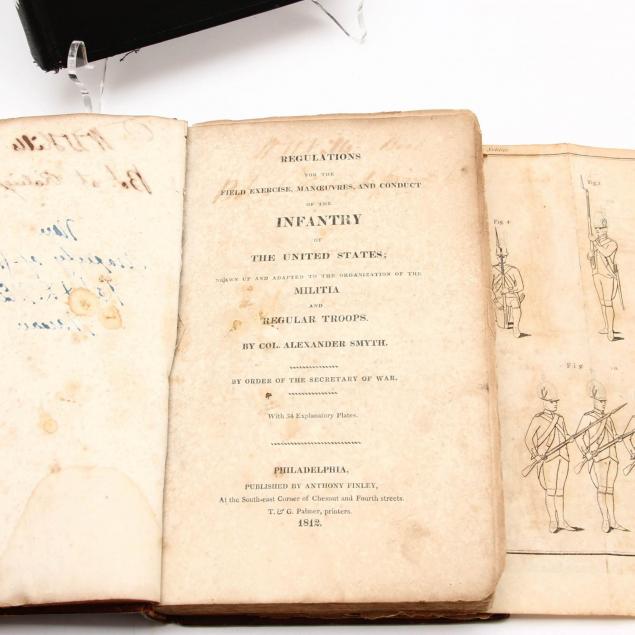 REGULATIONS
FOR THE
FIELD EXERCISE, MANŒUVRES, AND CONDUCT
OF THE
INFANTRY
OF
THE UNITED STATES;
DRAWN UP AND ADAPTED TO THE ORGANIZATION OF THE
MILITIA
AND
REGULAR TROOPS.
BY COL. ALEXANDER SMYTH.
BY ORDER OF THE SECRETARY OF WAR.
With 34 Explanatory Plates.
PHILADELPHIA,
PUBLISHED BY ANTHONY FINLEY,
At the South-east Corner of Chesnut and Fourth streets.
T. & G. Palmer, printers.
1812.
Fig.
Fig.
Fig